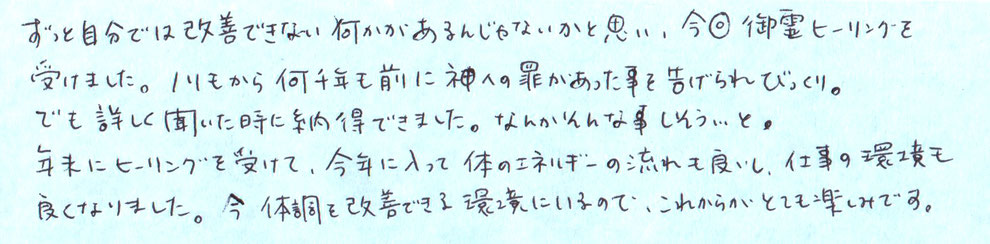 ずっと自分では改善できない何かがあるんじゃないかと思い、今回御霊ヒーリングを
受けました。ノリモから何千年も前に神への罪があった事を告げられびっくり。
でも詳しく聞いた時に納得できました。なんかそんな事しそういと。
年末にヒーリングを受けて、今年に入って体のエネルギーの流れも良いし、仕事の環境も
良くなりました。今体調を改善できる環境にいるので、これからがとても楽しみです。